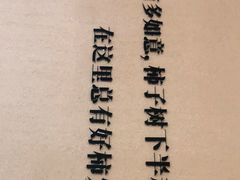 多如意，柿子树下半
在这里总有好柿